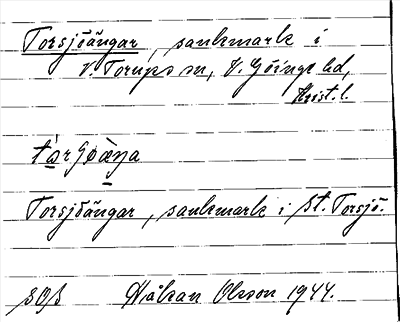 Torsjöängar, sankmark i
V. Torups sn, V. Göinge hd,
Krist. l.
Torsjöängar, sankmark i St. Torsjö.
Håkan Olsson 1944.